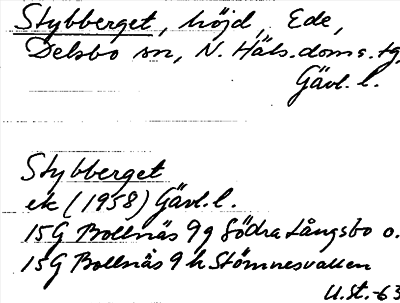 Stybberget, höjd, Ede,
Delsbo sn, N. Häls. doms. tg,
Gävl. l.
Stybberget
ek (1958) Gävl. l.
15G Bollnäs 9g Södra Långsbo o.
15G Bollnäs 9h Stömnesvallen
U.St.-63